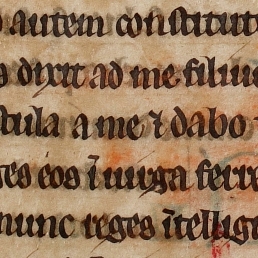 autem constitut
dixit ad me filiu
stula a me ⁊ dabo
ges eos ī uirga ferre
nunc reges ītellig